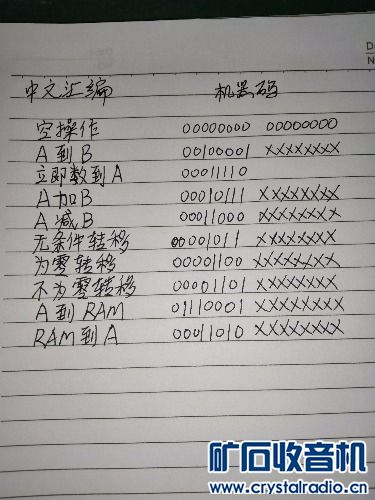 中文汇编 机器码
空操作 00000000 00000000
A到B 00100001 XXXXXXXX
立即数到A 00011110
A加B 00010111 XXXXXXXX
A减B 00011000 XXXXXXXX
无条件转移 00001011 XXXXXXXX
为零转移 00001100 XXXXXXXX
不为零转移 00001101 XXXXXXXX
A到RAM 01110001 XXXXXXXX
RAM到A 00011010 XXXXXXXX
矿石收音机
www.crystalradio.cn